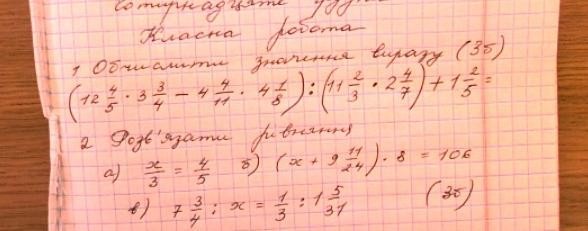 Чотирнадцяте грудня
Класна робота
1 Обчислити значення виразу (3б)
(12 4/5 · 3 3/4 − 4 4/11 · 4 1/8) : (11 2/3 · 2 4/7) + 1 2/5 =
2 Розв'язати рівняння
а) x/3 = 4/5 б) (x + 9 11/24) · 8 = 106
в) 7 3/4 : x = 1/3 : 1 5/31 (3б)